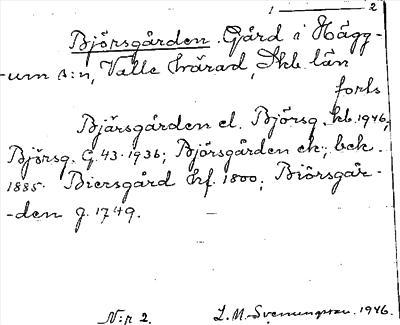 1 ——— 2
Björsgården. Gård i Hägg-
-um s:n, Valle härad, Skb. län
forts
Bjärsgården el. Björsg. kb. 1946;
Björsg. G. 43. 1936; Björsgården ek.; bek.
1885. Biersgård hf. 1800; Biörsgår-
-den g. 1749.
N:r 2. L. M. Svenungsson. 1946.